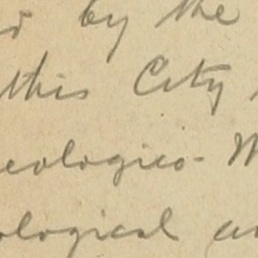 by the
this City
eologico-
ological